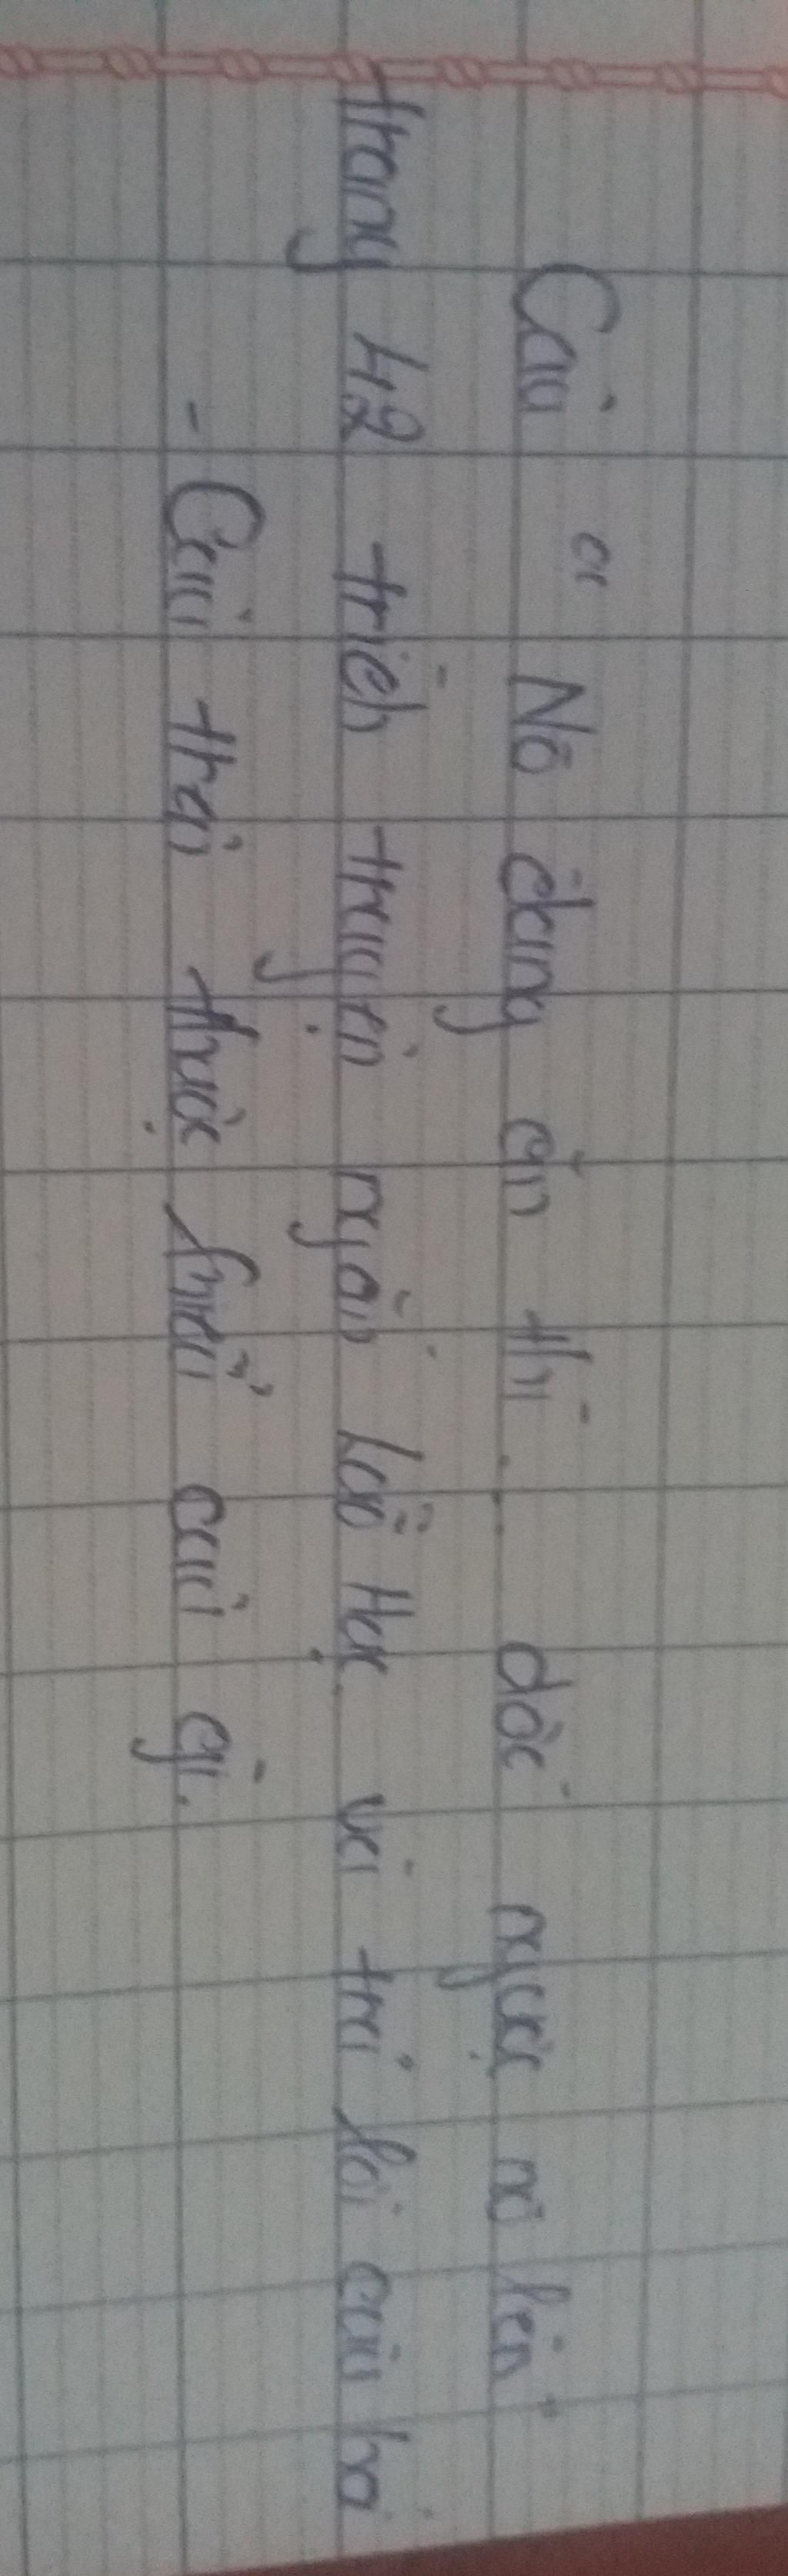 Câu " Nó đang ăn thì... dốc ngược nó lên"
trang 42 trích truyện ngắn Lão Hạc và trả lời câu hỏi
- Câu trên thuộc kiểu câu gì.